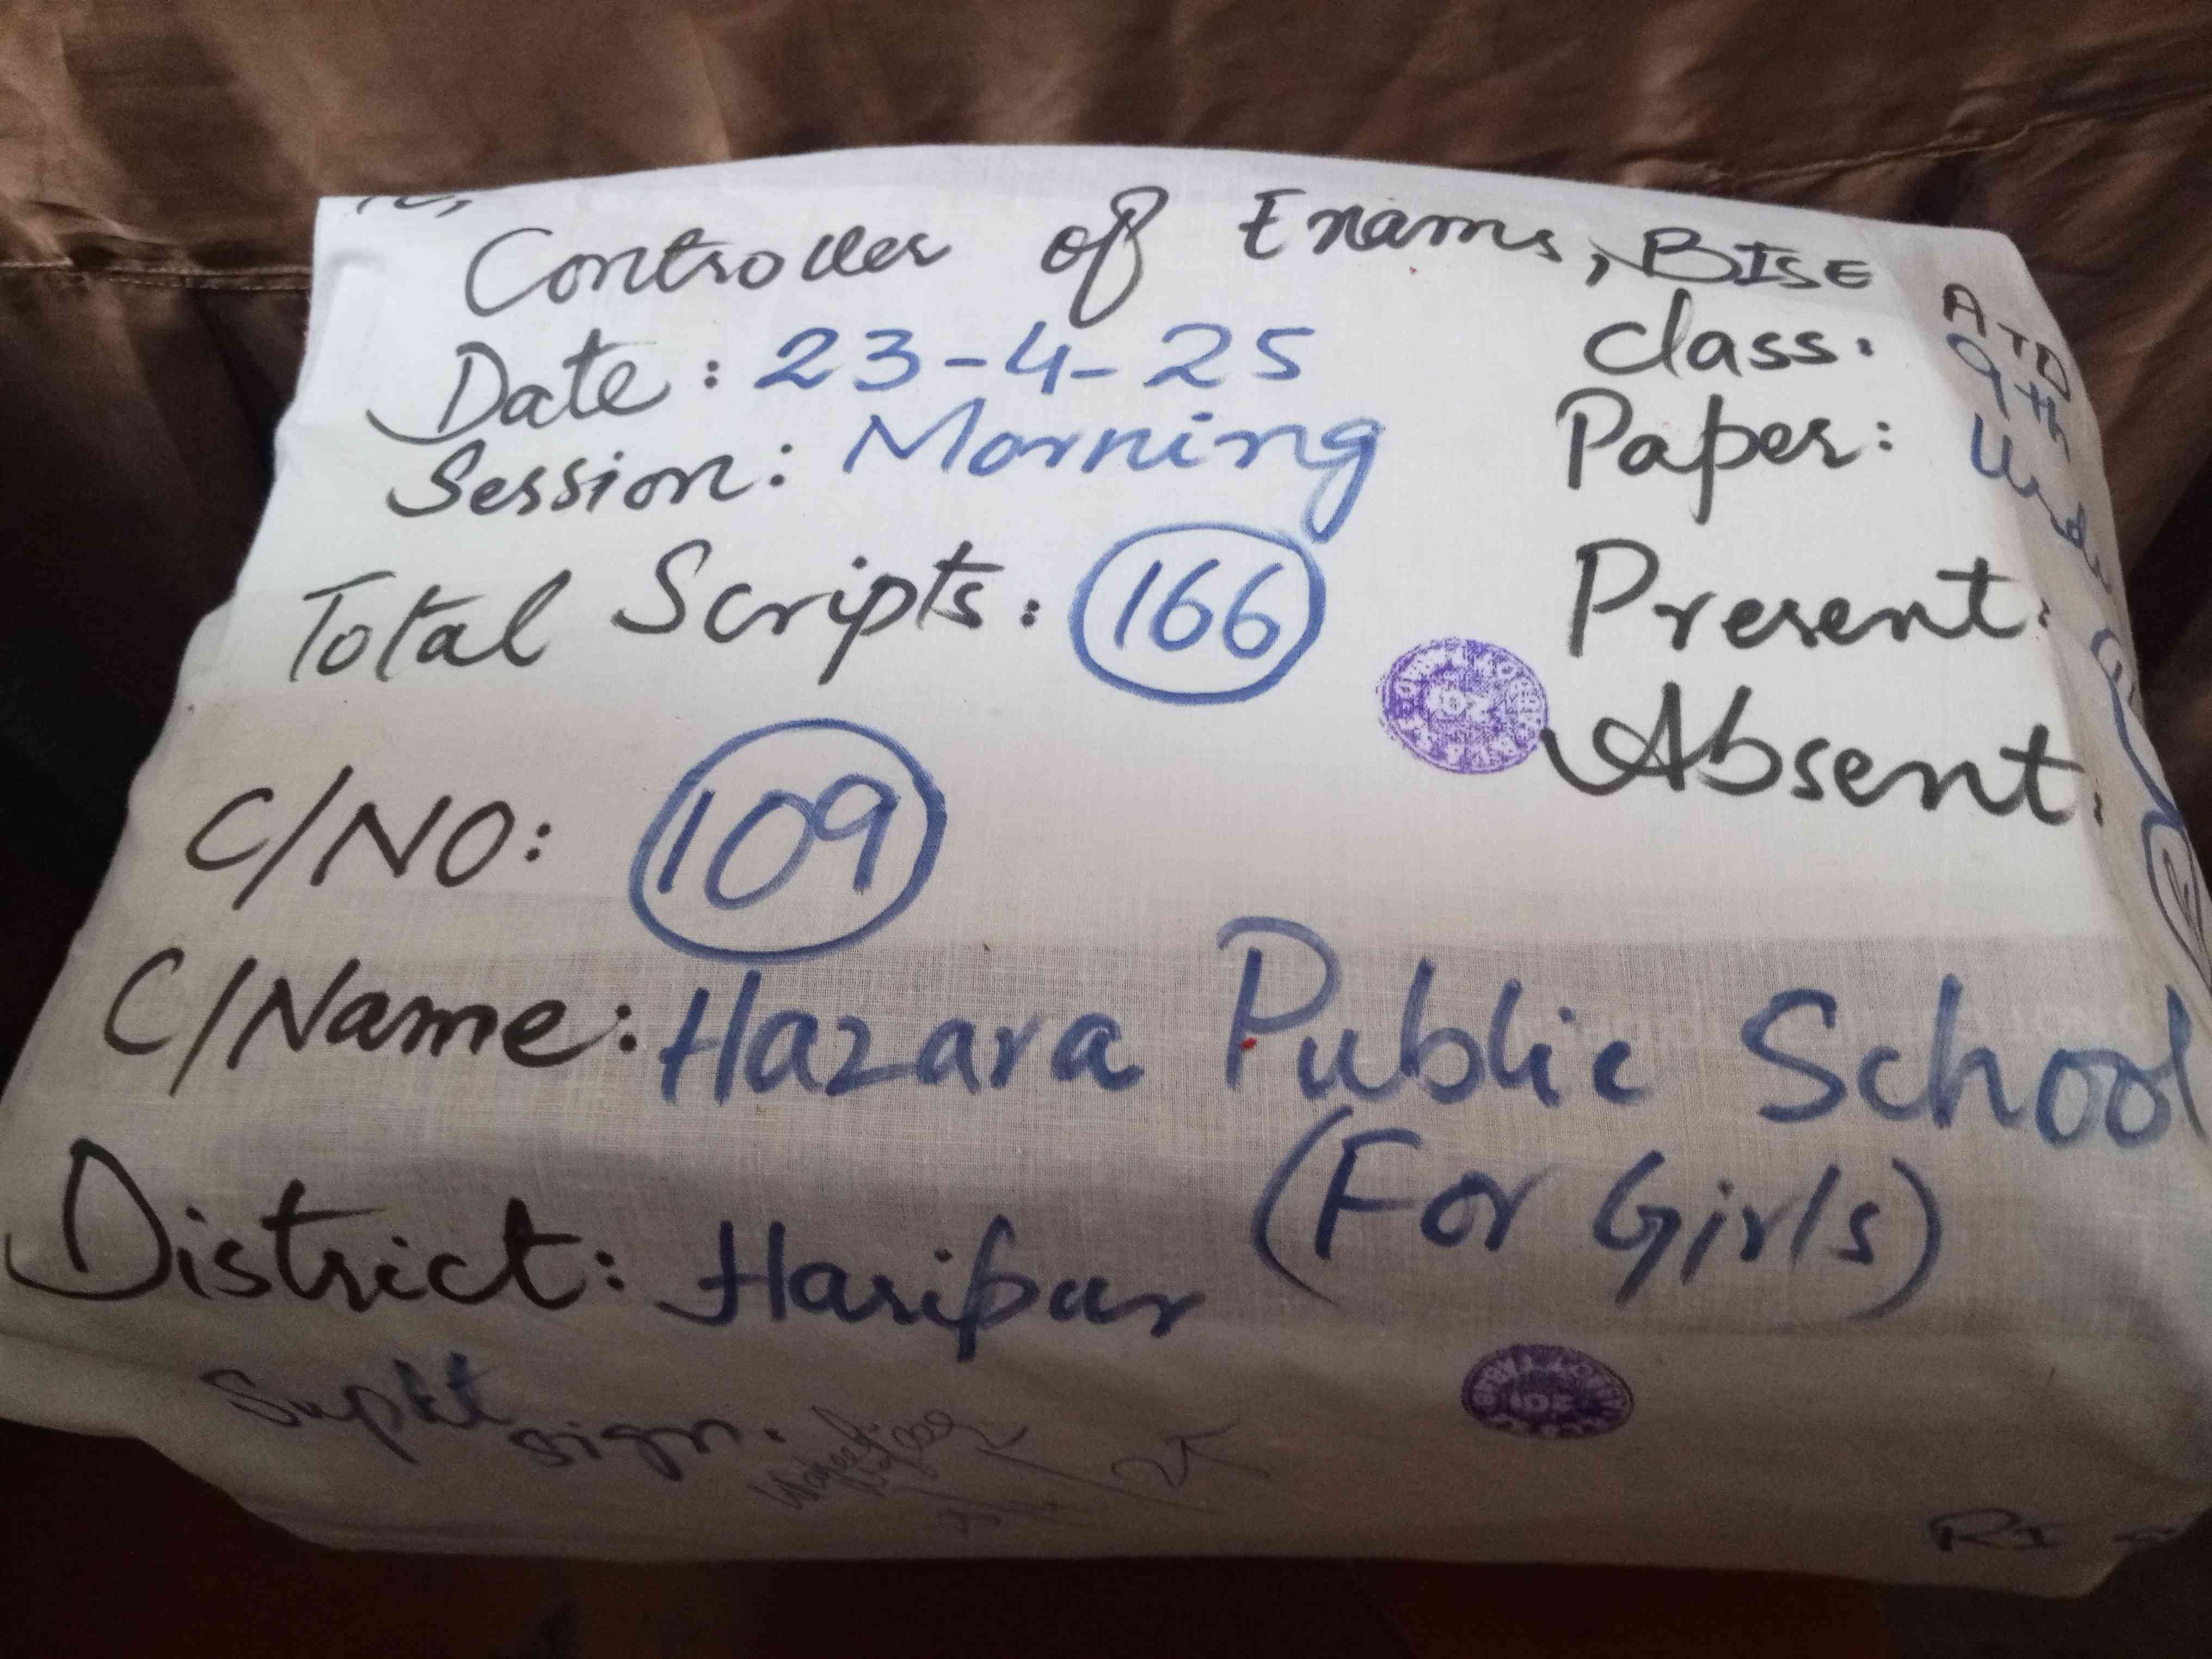 Controller of Exams, BISE ATD
Date: 23-4-25
class: 9th
Session: Morning
Paper: Urdu
Total Scripts: 166
Present:
Absent:
C/NO: 109
C/Name: Hazara Public School
(For Girls)
District: Haripur
Supdt sign.
RI